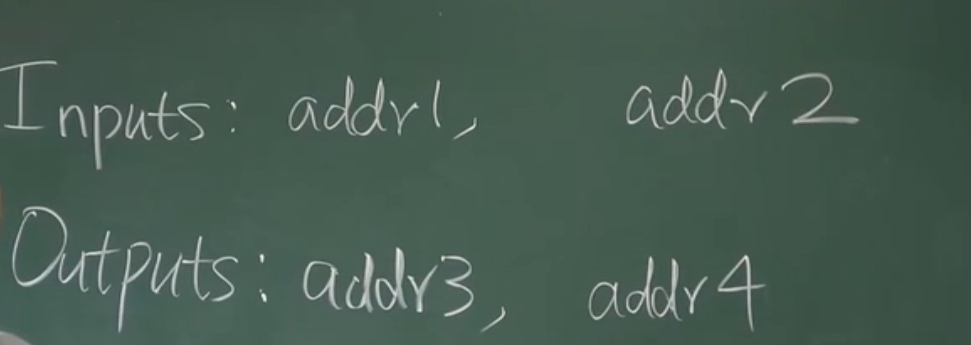 Inputs: addr1, addr2
Outputs: addr3, addr4